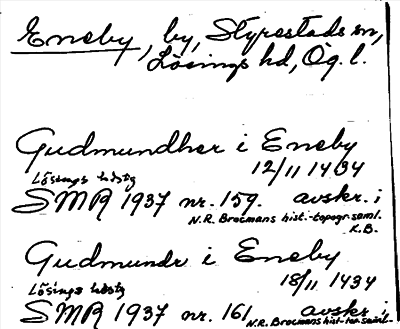 Eneby, by, Styrestads sn,
Lösings hd, Ög. l.
Gudmundher i Eneby
12/11 1434
Lösings hdstg
SMR 1937 nr. 159. avskr. i
N.R. Brocmans hist.-topogr. saml.
K.B.
Gudmundr i Eneby
18/11 1434
Lösings hdstg
SMR 1937 nr. 161 avskr. i
N.R. Brocmans hist.-top. saml.